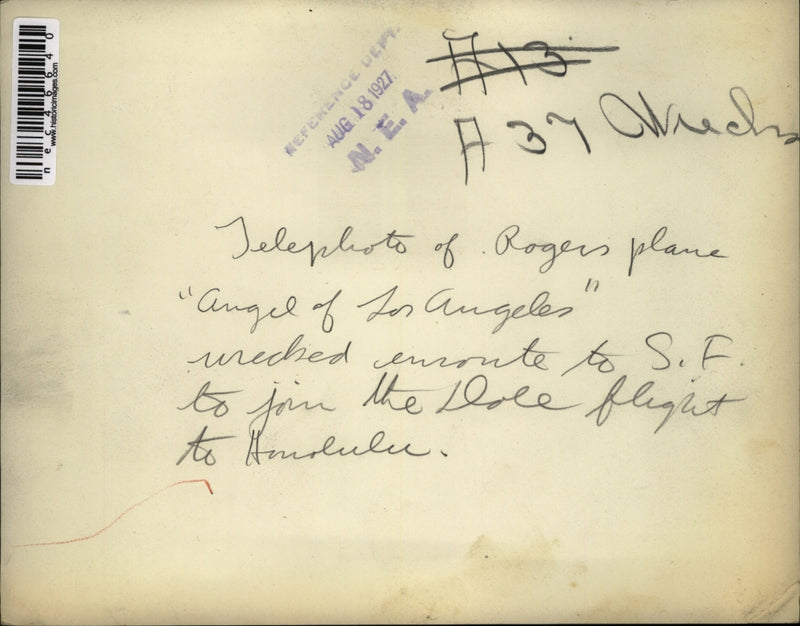 ne46640
www.historicimages.com
REFERENCE DEPT.
AUG 18 1927
N. E. A.
A 13
A 37 Wrecks
Telephoto of Rogers plane
"Angel of Los Angeles"
wrecked enroute to S. F.
to join the Dole flight
to Honolulu.